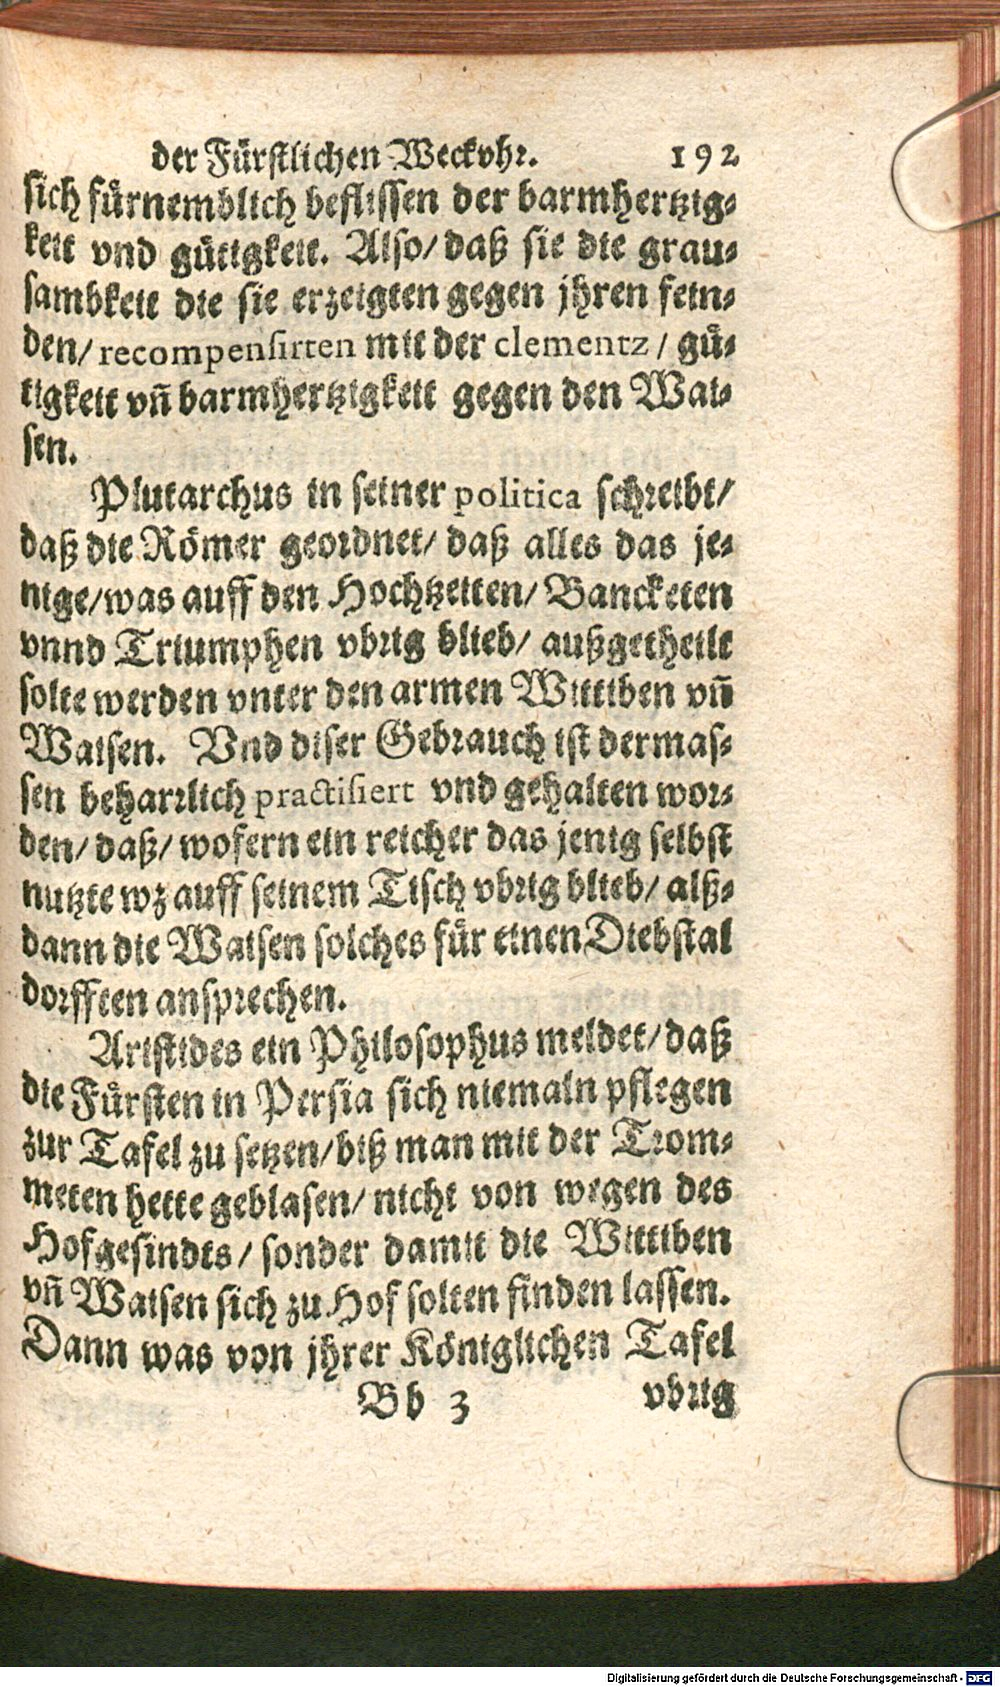 der Fürstlichen Weckvhr. 192
sich fürnemblich beflissen der barmhertzig-
keit vnd gütigkeit. Also/ daß sie die grau-
sambkeit die sie erzeigten gegen jhren fein-
den/ recompensirten mit der clementz / gü-
tigkeit vñ barmhertzigkeit gegen den Wai-
sen.
Plutarchus in seiner politica schreibt/
daß die Römer geordnet/ daß alles das je-
nige/was auff den Hochtzeiten/ Bancketen
vnnd Triumphen vbrig blieb/ außgetheilt
solte werden vnter den armen Wittiben vñ
Waisen. Vnd diser Gebrauch ist dermas-
sen beharrlich practisiert vnd gehalten wor-
den/ daß/ wofern ein reicher das jenig selbst
nutzte wz auff seinem Tisch vbrig blieb/ alß-
dann die Waisen solches für einen Diebstal
dorfften ansprechen.
Aristides ein Philosophus meldet/ daß
die Fürsten in Persia sich niemaln pflegen
zur Tafel zu setzen/biß man mit der Trom-
meten hette geblasen/ nicht von wegen des
Hofgesindts/ sonder damit die Wittiben
vñ Waisen sich zu Hof solten finden lassen.
Dann was von jhrer Königlichen Tafel
Bb 3 vbrig
Digitalisierung gefördert durch die Deutsche Forschungsgemeinschaft - DFG